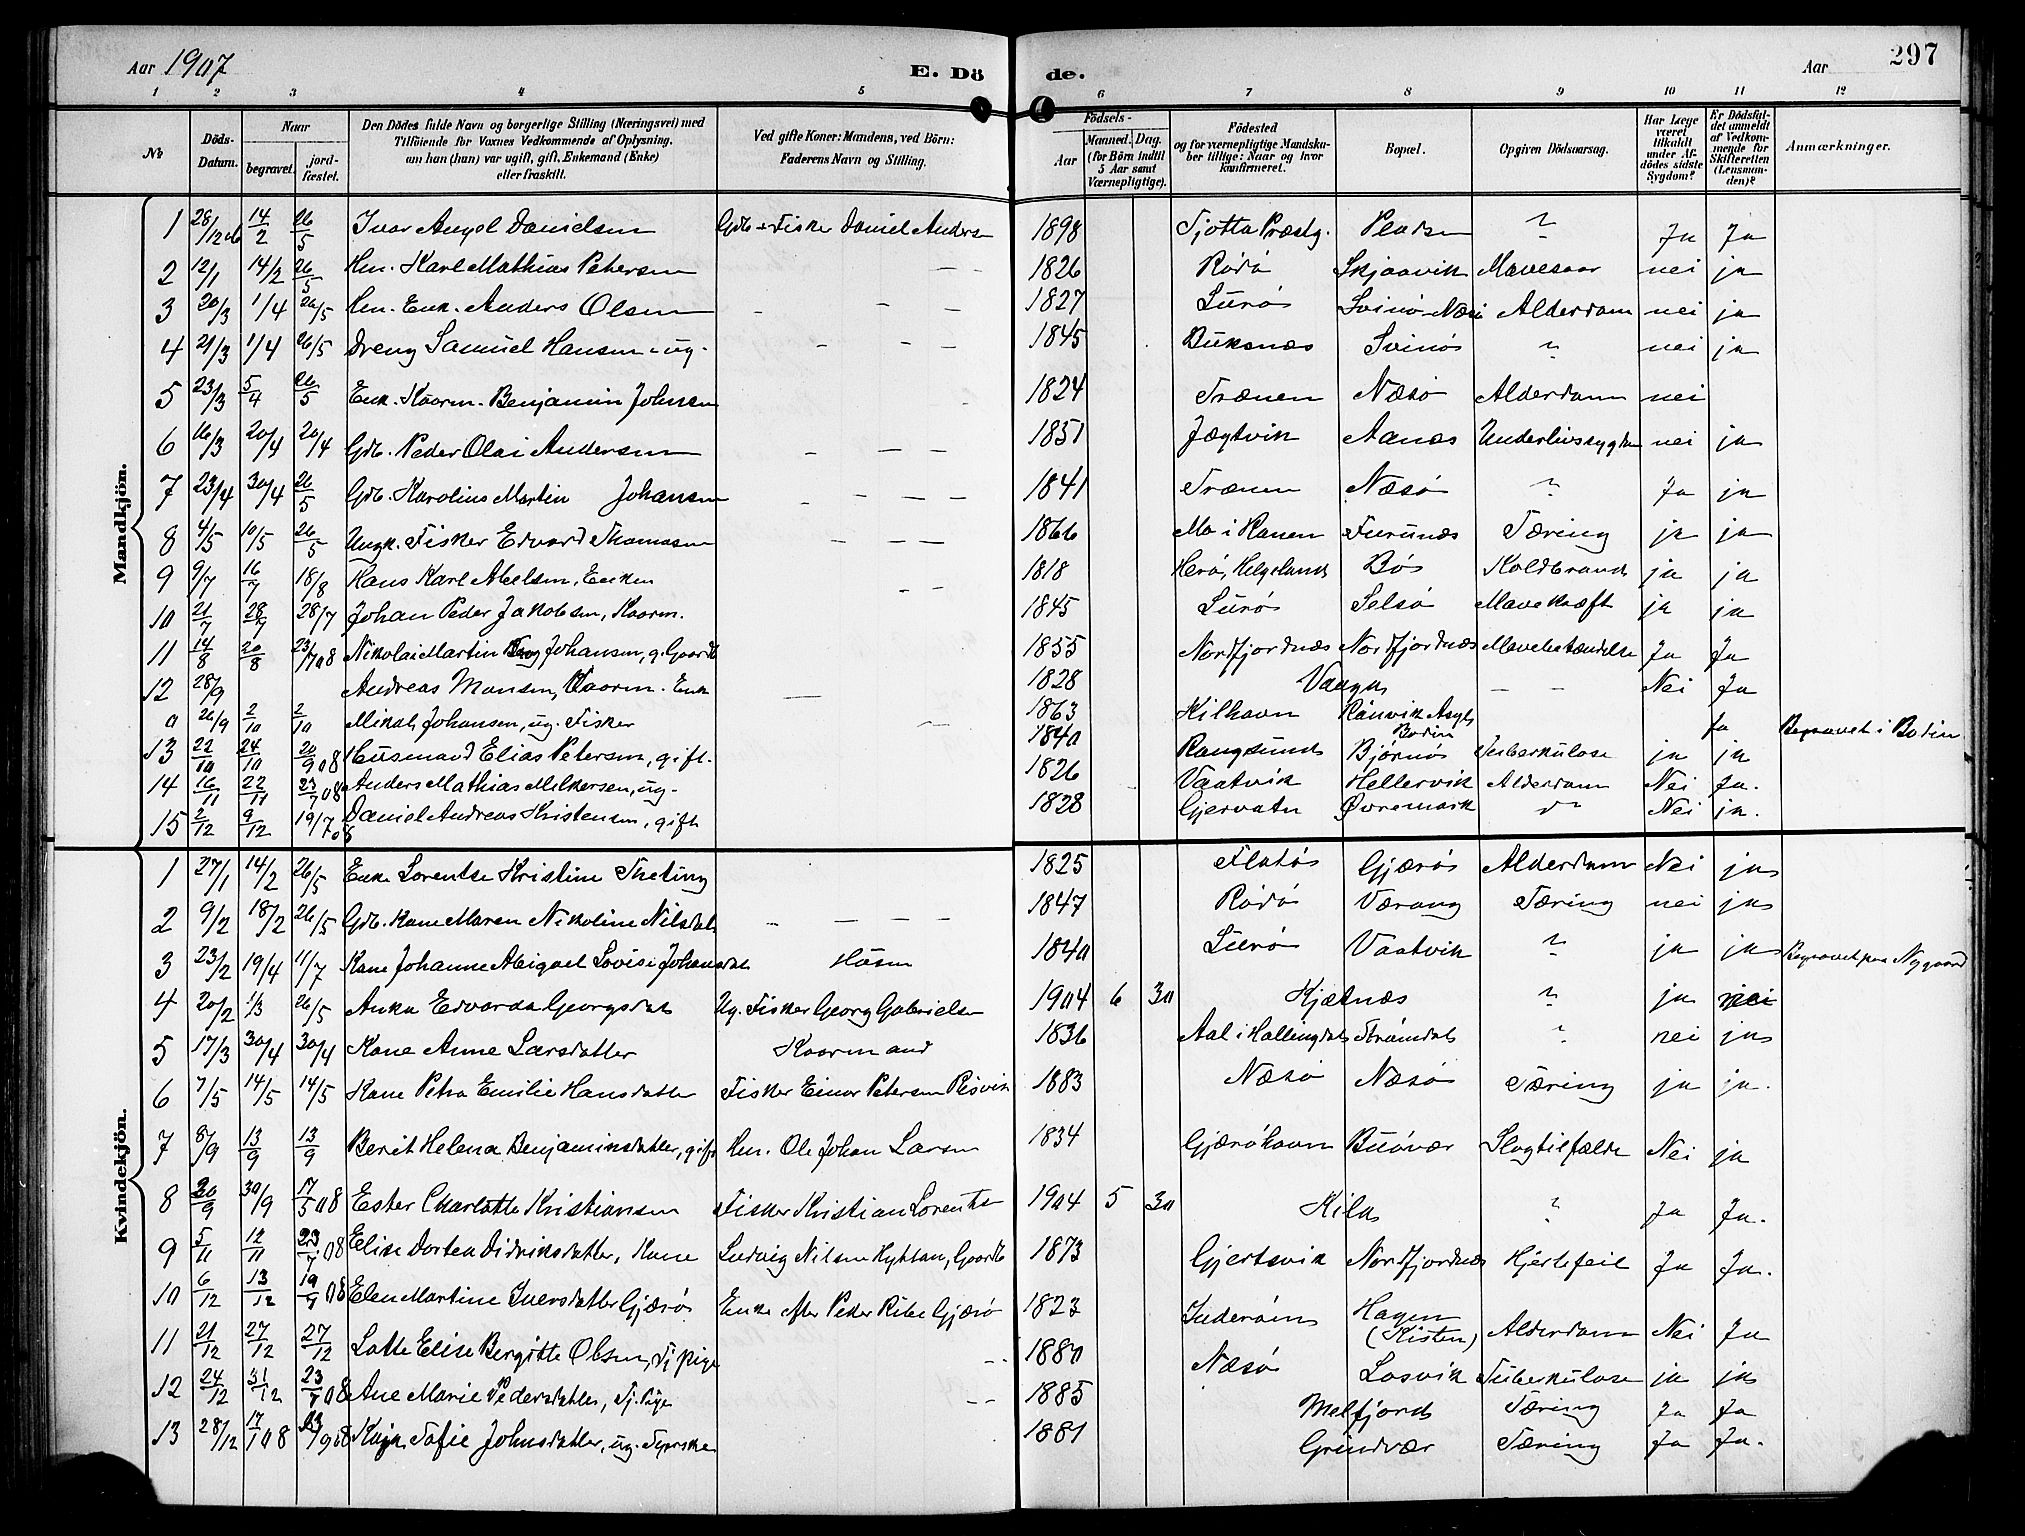 Aar 1907
E. Dö de.
Aar
297
1 2 3 4 5 6 7 8 9 10 11 12
No
Döds-Datum.
Naar
begravet.
jordfæstet.
Den Dödes fulde Navn og borgerlige Stilling (Næringsvei) med
Tilföiende for Voxnes Vedkommende af Oplysning,
om han (hun) var ugift, gift, Enkemand (Enke)
eller fraskilt.
Ved gifte Koner: Mandens, ved Börn:
Faderens Navn og Stilling.
Födsels-
Aar
Maaned. Dag.
(for Börn indtil
5 Aar samt
Værnepligtige).
Födested
og for værnepligtige Mandskaber tillige: Naar og hvor
konfirmeret.
Bopæl.
Opgiven Dödsaarsag.
Har Læge
været
tilkaldt
under Afdödes sidste
Sygdom?
Er Dödsfaldet anmeldt
af Vedkommende for
Skifteretten
(Lensmanden)?
Anmærkninger.
Mandkjön.
1 28/12 06 14/2 26/5 Ivar Angel Danielsen Gdb. + Fisker Daniel Anders 1898 Tjøtta Præstg. ~ Ja Ja
2 12/1 14/2 26/5 Hm. Karl Mathias Petersen — — 1826 Rødø Skjaavik Mavesaar nei ja
3 20/3 1/4 26/5 Hm. Enk. Anders Olsen — — — 1827 Lurø Svinø Næsø Alderdom nei ja
4 21/3 1/4 26/5 Dreng Samuel Hansen - ug. — — — 1845 Buksnæs Svinø ~ nei ja
5 23/3 5/4 26/5 Enk. Kaarm. Benjamin Johnsen 1824 Trænen Næsø Alderdom nei
6 16/3 20/4 20/4 Gdb. Peder Olai Andersen — — — 1851 Jægtvik Aanæs Underlivssygdom nei ja
7 23/4 30/4 26/5 Gdb. Karolius Martin Johansen — — — — 1841 Trænen Næsø ~ Ja ja
8 4/5 10/5 26/5 Ungk. Fisker Edvard Thomasen — — — 1866 Mo i Ranen Furunæs Tæring ja ja
9 9/7 16/7 18/8 Hans Karl Abelsen, Enkem — — 1818 Herø, Helgeland Bø Koldbrand ja ja
10 21/7 28/7 28/7 Johan Peder Jakobsen, Kaarm. 1845 Lurø Selsø Mavekræft ja ja
11 14/8 20/8 23/7 08 Nikolai Martin Johansen, g. Gaardb 1855 Nordfjordnæs Nordfjordnæs Mavebetændelse Ja Ja
12 28/9 Andreas Monsen, Kaarm. Enk — 1828 Vaaga — — Nei Ja
a 26/9 2/10 2/10 Mikal Johansen, ug. Fisker — 1863 Kilhavn Rønvik Asyl Bodin Ja Begravet i Bodin
13 22/10 24/10 20/9 08 Husmand Elias Petersen, gift. 1840 Rangsund Bjørnø Tuberkulose ja ja
14 16/11 22/11 23/7 08 Anders Mathias Melkersen, ug. 1826 Vaatvik Hellervik Alderdom Nei Ja.
15 2/12 9/12 19/7 08 Daniel Andreas Kristensen, gift 1828 Gjervatn Øvremark d~ Nei ja.
Kvindekjön.
1 27/1 14/2 26/5 Enke Lorentse Kristine Theting 1825 Flatø Gjærø Alderdom Nei ja
2 9/2 18/2 26/5 Gdb. Kone Maren Nikoline Nilsdat — — — — 1847 Rødø Værang Tæring nei ja
3 23/2 19/4 11/7 Kone Johanne Abigael Lovise Johansdat Husm 1840 Lurø Vaatvik ~ ja ja Begravet paa Nygaard
4 20/2 1/3 26/5 Anka Edvarda Georgsdat Ug. Fisker Georg Gabrielsen 1904 6 30 Kjætnæs ~ ja nei
5 17/3 30/4 30/4 Kone Anne Larsdatter Kaarmand 1836 Aal i Hallingdal Strømdal ~ nei ja
6 7/5 14/5 14/5 Kone Petra Emilie Hansdatter Fisker Einar Petersen Risvik 1883 Næsø Næsø Tæring ja ja.
7 8/9 13/9 13/9 Berit Helena Benjaminsdatter, gift Hm. Ole Johan Larsen 1834 Gjærøhavn Buøvær Slagtilfælde Nei ja
8 20/9 30/9 17/5 08 Ester Charlotte Kristiansen Fisker Kristian Lorents 1904 5 30 Kila ~ Ja Ja.
9 5/11 12/11 23/7 08 Elise Dortea Didriksdatter, Kone Ludvig Nilsen Hyttan, Gaardb 1873 Gjertsvik Nordfjordnæs Hjertefeil Ja Ja.
10 6/12 13/12 19/7 08 Elen Martine Iversdatter Gjærø Enke efter Peder Ribe Gjærø 1823 Inderøen Hagen (Kisten) Alderdom Nei Ja
11 21/12 27/12 27/12 Lotte Elise Bergitte Olsen, Tj. pige — 1880 Næsø Losvik Tuberkulose ja ja
12 24/12 31/12 23/7 08 Ane Marie Pedersdatter, Tj. Pige — — 1885 Melfjord Tæring Ja Ja
13 28/12 17/1 08 /9 08 Kaja Tofie Johnsdatter, ug. Syerske 1881 Grindvær Tæring Ja Ja.